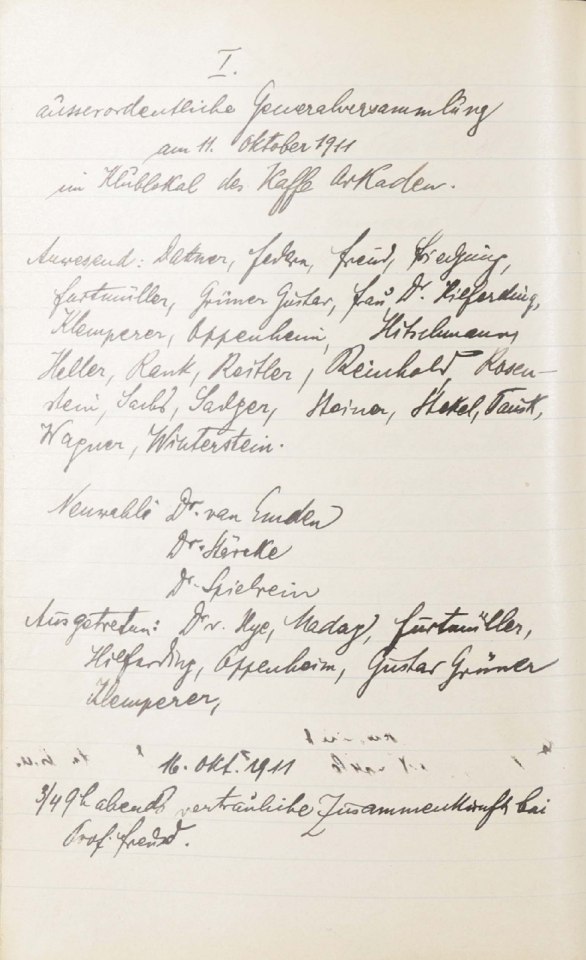 I.
äusserordentliche Generalversammlung
am 11. Oktober 1911
im Klublokal des Kaffe Arkaden.
Anwesend: Dattner, Federn, Freud, Friedjung,
Furtmüller, Grüner Gustav, Frau Dr. Hilferding,
Klemperer, Oppenheim, Hitschmann,
Heller, Rank, Reitler, Reinhold, Rosen-
stein, Sachs, Sadger, Steiner, Stekel, Tausk,
Wagner, Winterstein.
Neuwahl: Dr. van Emden
Dr. Stärcke
Dr. Spielrein
Ausgetreten: Dr. v. Hye, Maday, Furtmüller,
Hilferding, Oppenheim, Gustav Grüner
Klemperer,
16. Okt. 1911
3/4 9 h abends vertrauliche Zusammenkunft bei
Prof. Freud.